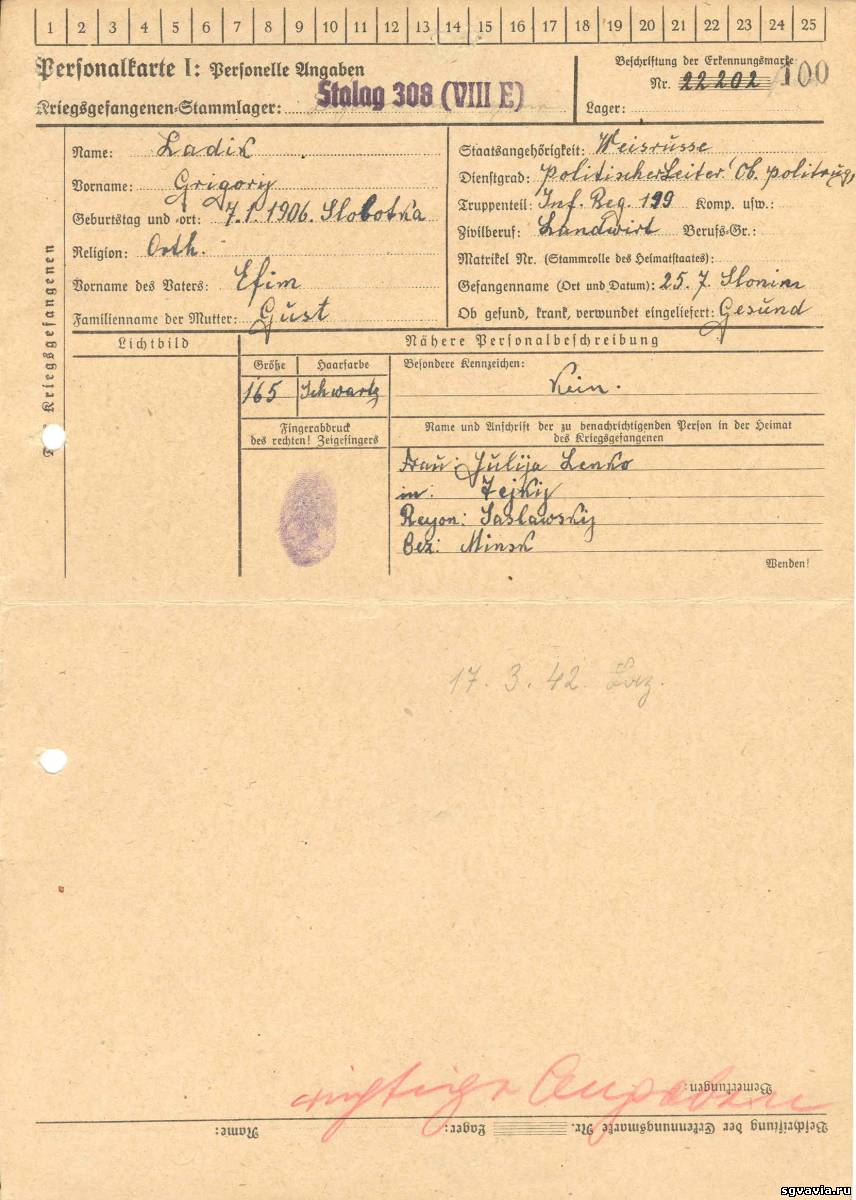 1 2 3 4 5 6 7 8 9 10 11 12 13 14 15 16 17 18 19 20 21 22 23 24 25
Personalkarte I: Personelle Angaben
Kriegsgefangenen-Stammlager: Stalag 308 (VIII E)
Beschriftung der Erkennungsmarke
Nr. 22202 100
Lager:
Des Kriegsgefangenen
Name: Ladik
Vorname: Grigory
Geburtstag und -ort: 7.1.1906. Slobotka
Religion: Orth.
Vorname des Vaters: Efim
Familienname der Mutter: Gust
Staatsangehörigkeit: Weisrusse
Dienstgrad: Politischer Leiter Ob. politruk
Truppenteil: Inf. Reg. 199 Komp. usw.:
Zivilberuf: Landwirt Berufs-Gr.:
Matrikel Nr. (Stammrolle des Heimatstaates):
Gefangennahme (Ort und Datum): 25.7. Slonim
Ob gesund, krank, verwundet eingeliefert: Gesund
Lichtbild
Nähere Personalbeschreibung
Größe Haarfarbe
165 Schwartz
Besondere Kennzeichen:
Kein.
Fingerabdruck
des rechten! Zeigefingers
Name und Anschrift der zu benachrichtigenden Person in der Heimat
des Kriegsgefangenen
Frau: Julija Lenko
in:
Reyon: Saslawskij
Bez: Minsk
Wenden!
17. 3. 42.
Bemerkungen:
richtige Angaben
Beschriftung der Erkennungsmarke Nr. Lager: Name:
sgvavia.ru